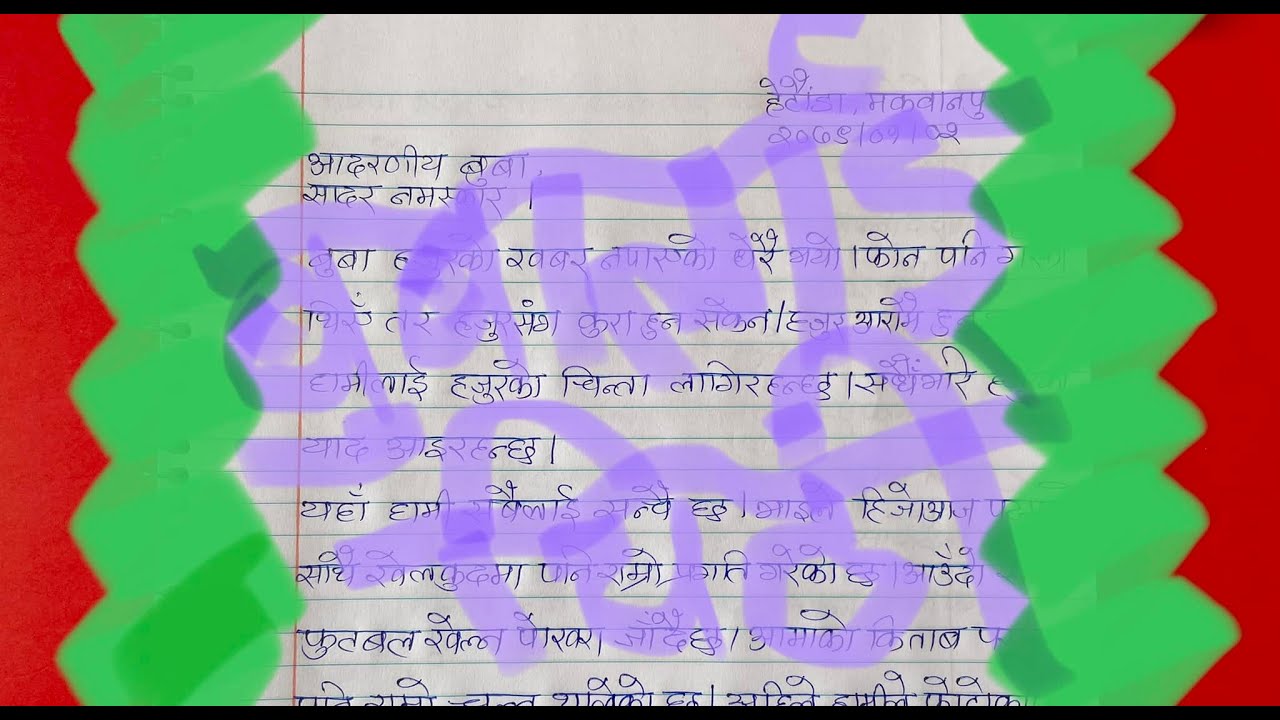 बुबालाई चिठी
हेटौंडा, मकवानपु
२०७९।०१।०२
आदरणीय बुबा,
सादर नमस्कार ।
बुबा हजुरको खबर नपाएको धेरै भयो । फोन पनि
थिएँ तर हजुरसंग कुरा हुन सकेन । हजुर आरामै
हामीलाई हजुरको चिन्ता लागिरहन्छ । सधैँभरि
याद आइरहन्छ ।
यहाँ हामी सबैलाई सन्चै छ । भाइले हिजोआज
साथै खेलकुदमा पनि राम्रो प्रगति गरेको छ । आउँदो
फुटबल खेल्न पोखरा जाँदैछ । आमाको किताब प
पनि राम्रो चल्न थालेको छ । अहिले हामीले